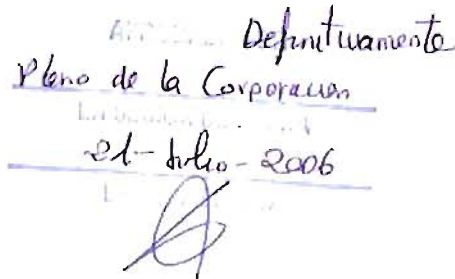 Definitivamente
Pleno de la Corporación
21-Julio-2006